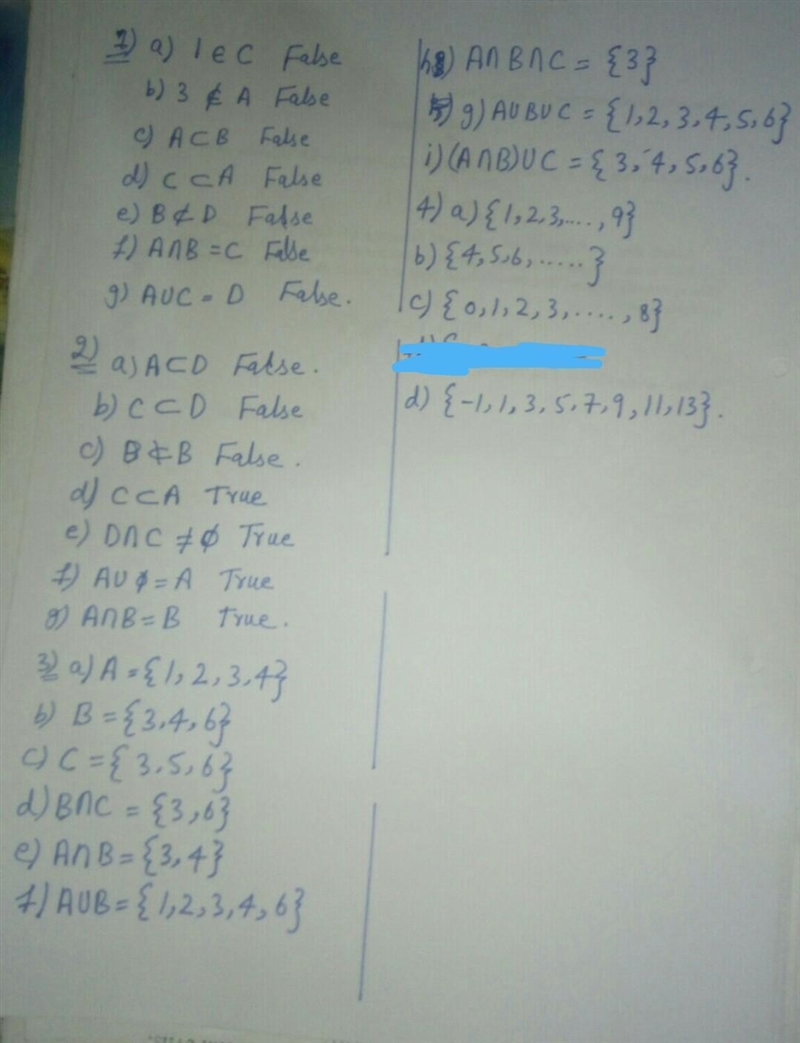 1) a) 1 ∈ C False
b) 3 ∉ A False
c) A ⊂ B False
d) C ⊂ A False
e) B ⊄ D False
f) A∩B = C False
g) A∪C = D False.
2) a) A⊂D False.
b) C ⊂ D False
c) B ⊄ B False.
d) C⊂A True
e) D∩C ≠ ∅ True
f) A∪∅ = A True
g) A∩B = B True.
3) a) A = {1, 2, 3, 4}
b) B = {3, 4, 6}
c) C = {3, 5, 6}
d) B∩C = {3, 6}
e) A∩B = {3, 4}
f) A∪B = {1, 2, 3, 4, 6}
h) A∩B∩C = {3}
g) A∪B∪C = {1, 2, 3, 4, 5, 6}
i) (A∩B)∪C = {3, 4, 5, 6}.
4) a) {1, 2, 3, ...., 9}
b) {4, 5, 6, ..... }
c) {0, 1, 2, 3, ...., 8}
d) {-1, 1, 3, 5, 7, 9, 11, 13}.